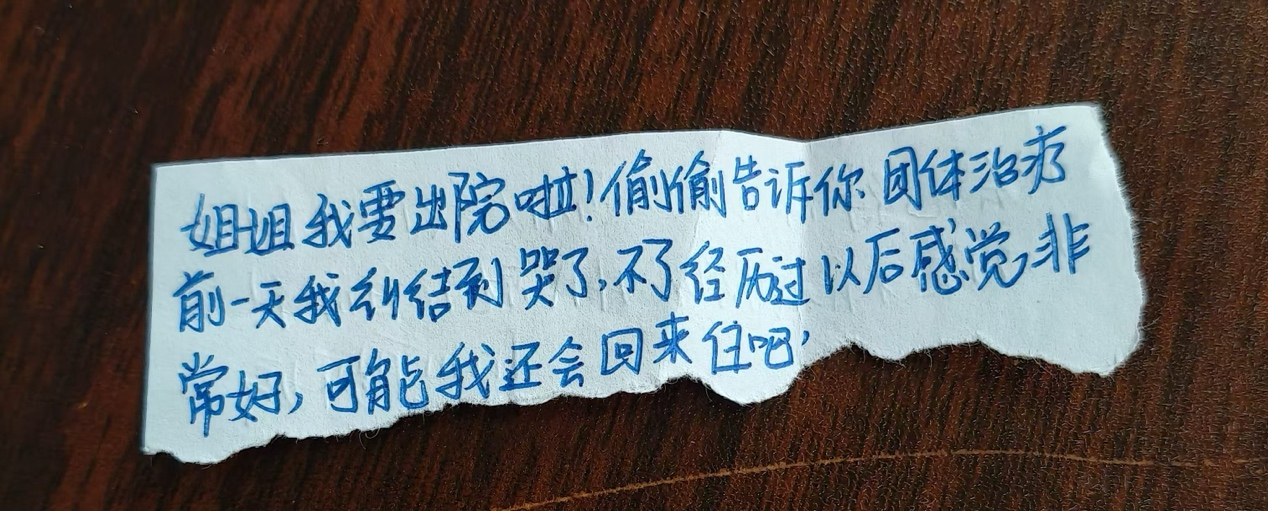 姐姐我要出院啦!偷偷告诉你 团体治疗
前一天我纠结到哭了,不了经历过以后感觉非
常好,可能我还会回来住吧,